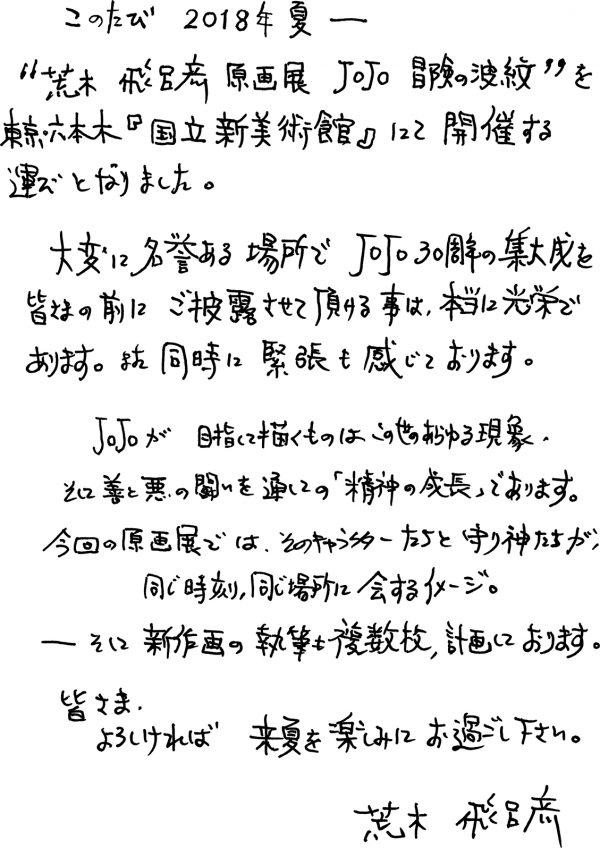 このたび 2018年 夏 ―
“荒木 飛呂彦 原画展 JoJo 冒険の波紋”を
東京・六本木『国立新美術館』にて 開催する
運びとなりました。
大変に 名誉ある 場所で JoJo 30周年の集大成を
皆さまの前に ご披露させて頂ける事は、本当に光栄で
あります。また 同時に 緊張も 感じております。
JoJoが 目指して描くものは、この世のあらゆる現象、
そして善と悪の闘いを通しての「精神の成長」であります。
今回の原画展では、そのキャラクターたちと守り神たちが、
同じ時刻、同じ場所に 会するイメージ。
― そして 新作画の 執筆も 複数枚、計画しております。
皆さま、
よろしければ 来夏を楽しみに お過ごし下さい。
荒木 飛呂彦